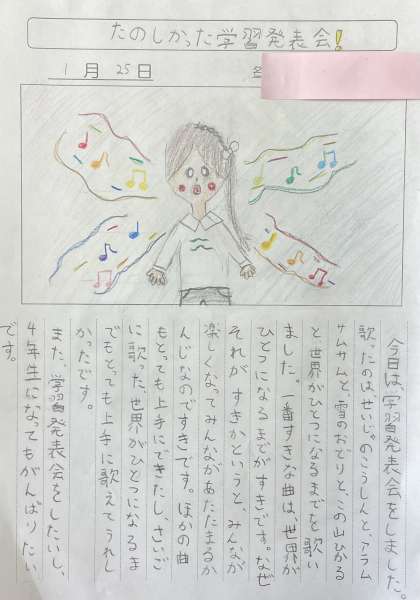 たのしかった学習発表会!
1月25日
今日は、学習発表会をしました。
歌ったのはせいじゃのこうしんと、アラム
サムサムと、雪のおどりと、この山ひかる
と世界がひとつになるまでを歌い
ました。一番すきな曲は、世界が
ひとつになるまでがすきです。なぜ
それがすきかというと、みんなが
楽しくなってみんながあたたまるか
んじなのですきです。ほかの曲
もとっても上手にできたし、さいご
に歌った、世界がひとつになるま
でもとっても上手に歌えてうれし
かったです。
また、学習発表会をしたいし、
4年生になってもがんばりたい
です。